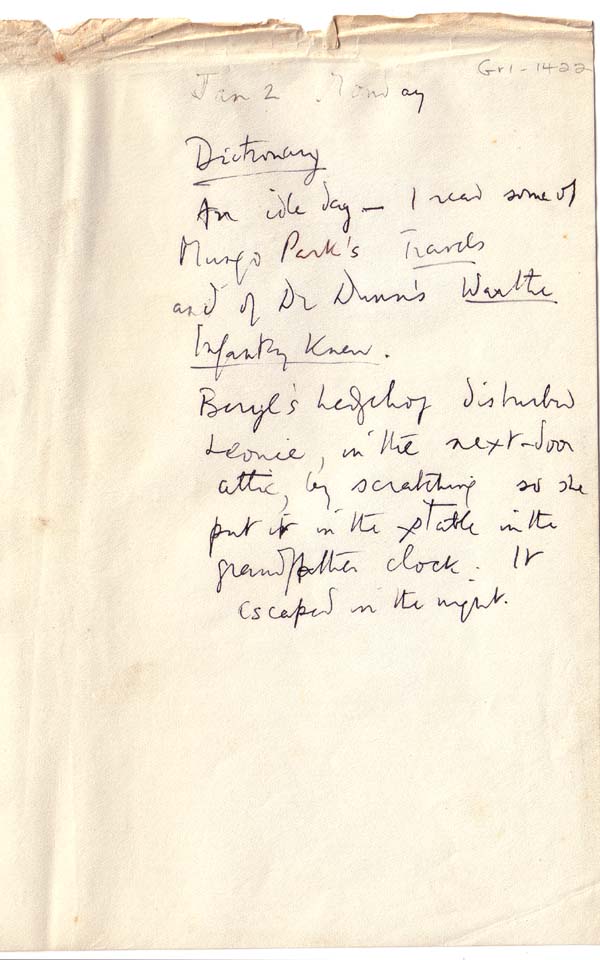 Gr1-1422
Jan 2 Monday
Dictionary
An idle day — I read some of
Mungo Park's Travels
and of Dr Dunn's War the
Infantry Knew.
Beryl's hedgehog disturbed
Leonie, in the next-door
attic, by scratching so she
put it in the stable in the
grandfather clock. It
escaped in the night.